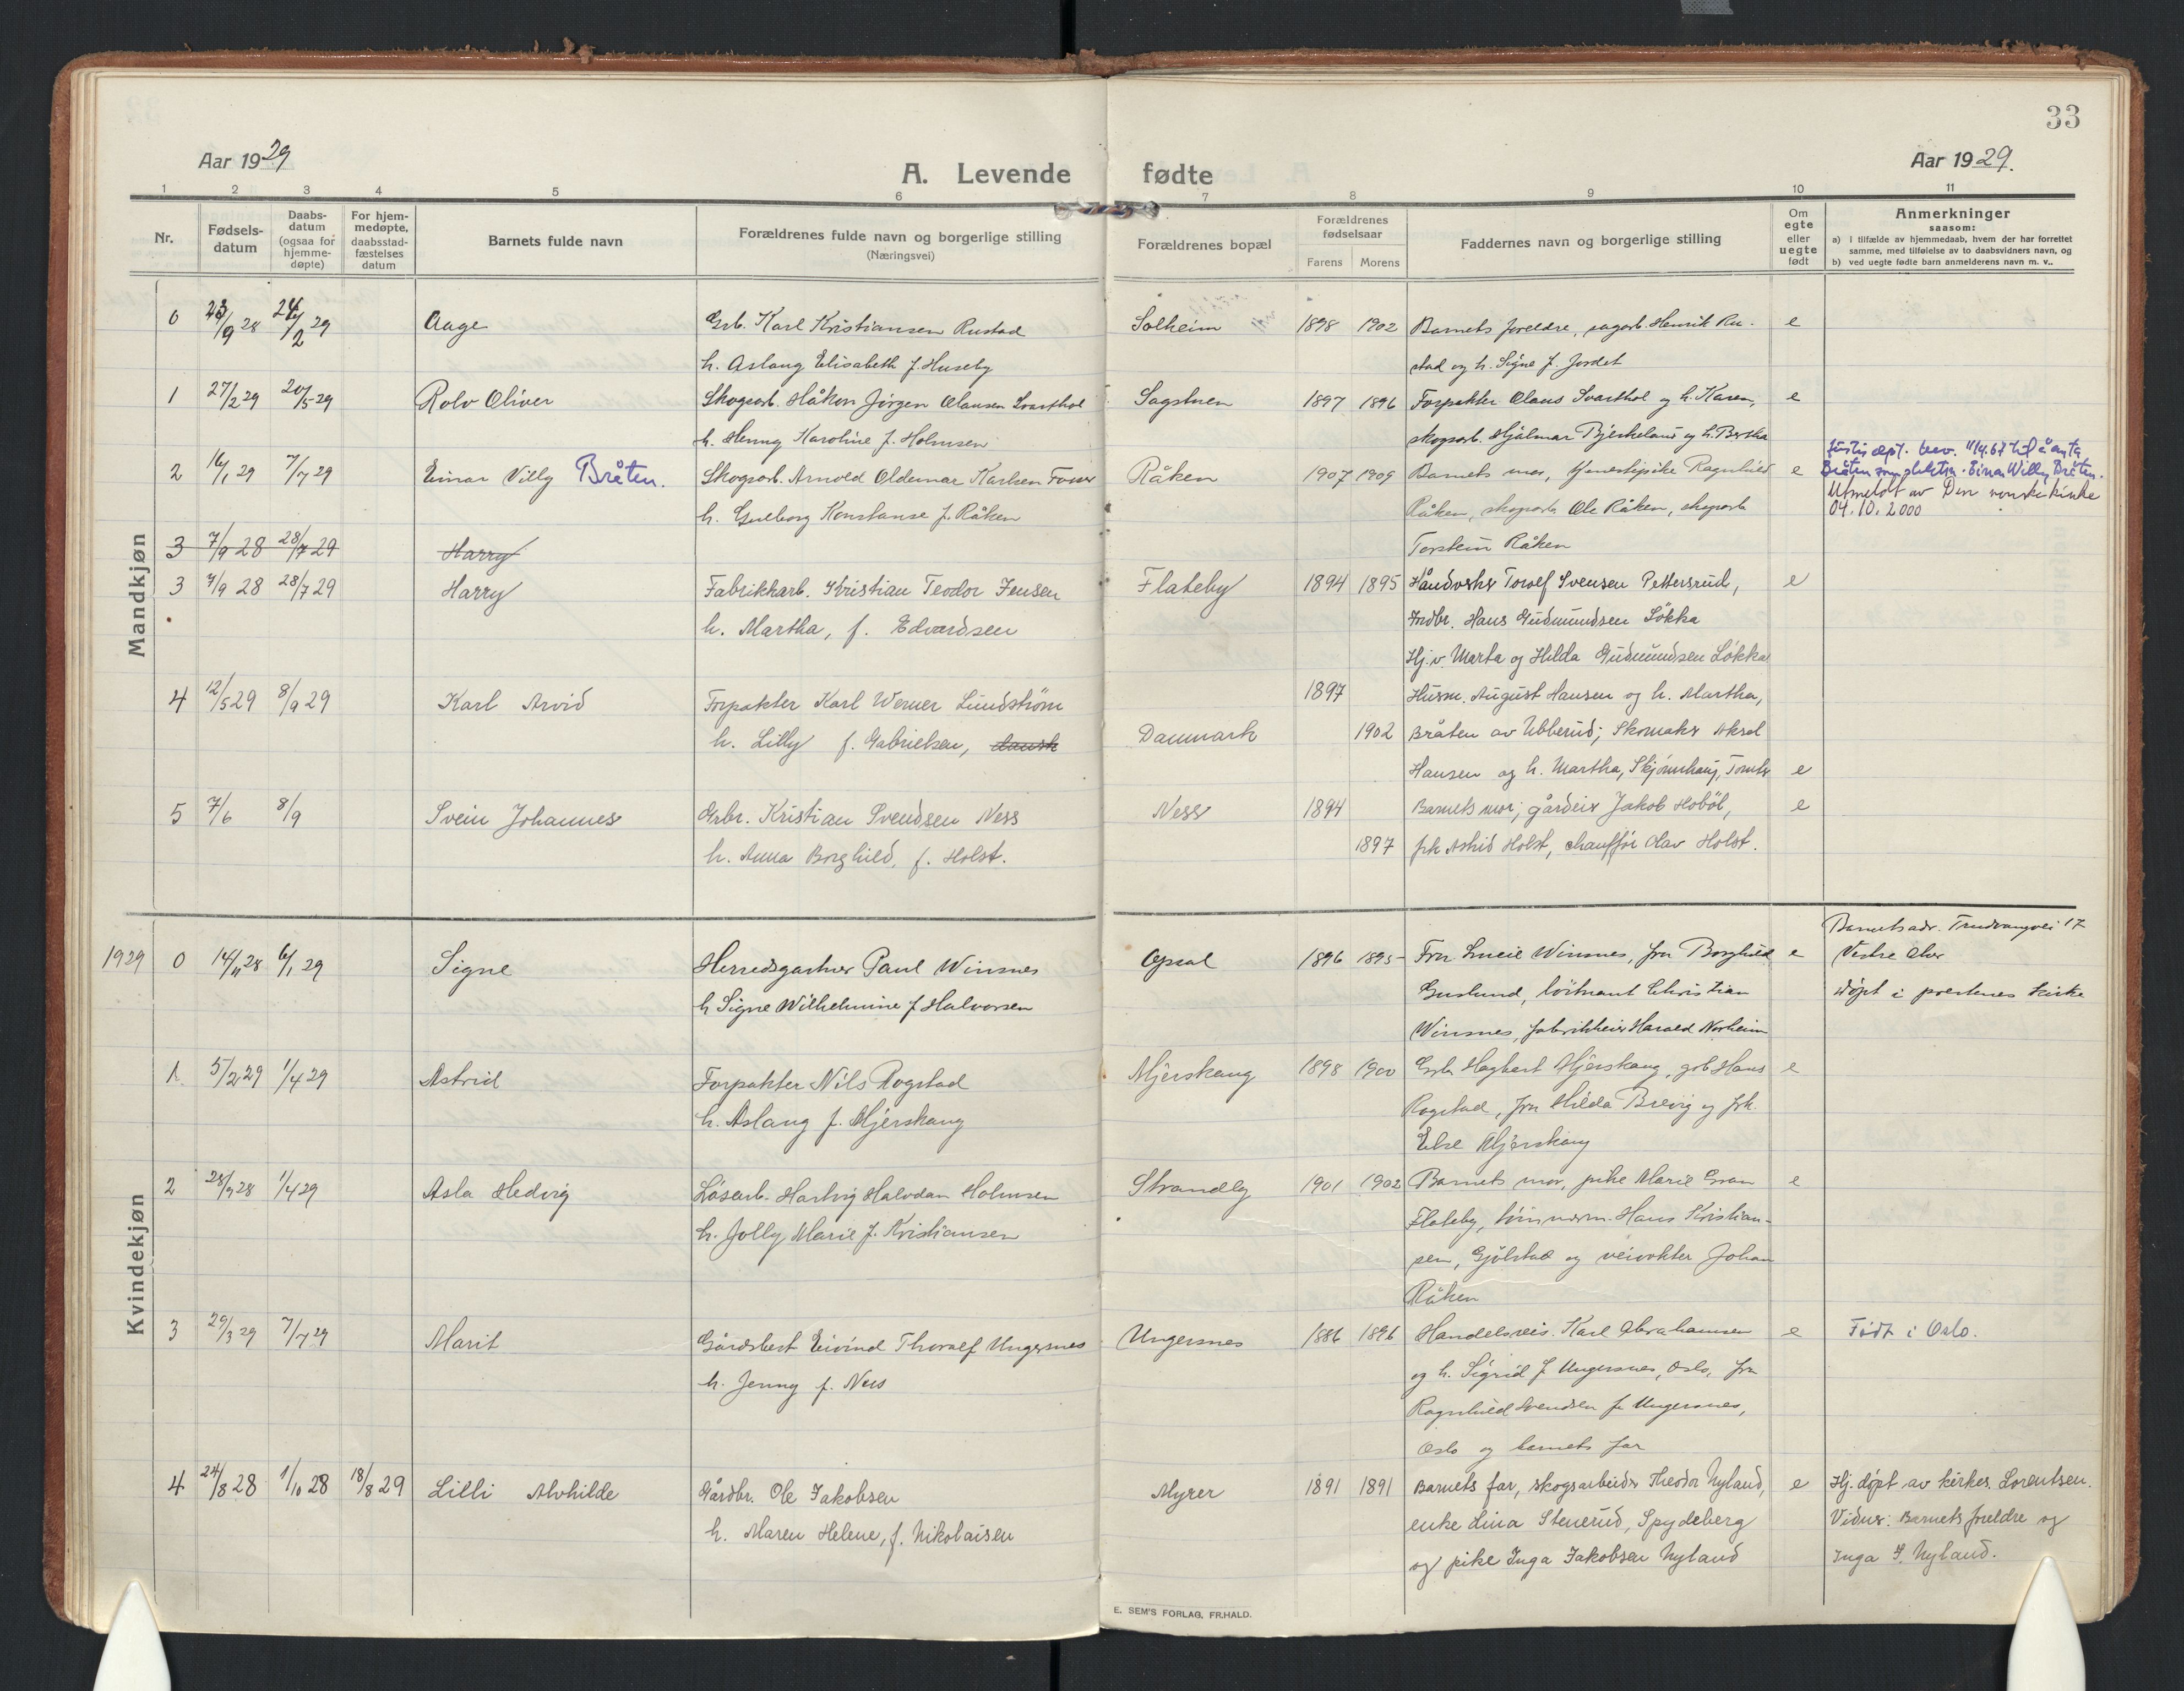 33
Aar 1929
A. Levende fødte
Aar 1929.
1 2 3 4 5 6 7 8 9 10 11
Nr.
Fødsels-
datum
Daabs-
datum
(ogsaa for
hjemme-
døpte)
For hjem-
medøpte,
daabsstad-
fæstelses
datum
Barnets fulde navn
Forældrenes fulde navn og borgerlige stilling
(Næringsvei)
Forældrenes bopæl
Forældrenes
fødselsaar
Farens Morens
Faddernes navn og borgerlige stilling
Om
egte
eller
uegte
født
Anmerkninger
saasom:
a) i tilfælde av hjemmedaab, hvem der har forrettet
samme, med tilføielse av to daabsvidners navn, og
b) ved uegte fødte barn anmelderens navn m. v..
Mandkjøn
0 23/9 28 24/2 29 Aage Grb. Karl Kristiansen Rustad Solheim 1898 1902 Barnets foreldre, sagarb. Henrik Ru- e
h. Aslaug Elisabeth f. Huseby stad og h. Signe f. Jordet
1 27/2 29 20/5 29 Rolv Oliver Skogsarb. Håkon Jørgen Olausen Svarthol Sagstuen 1897 1896 Forpakter Olaus Svarthol og h. Karen, e
h. Henny Karoline f. Holmsen skogsarb. Hjalmar Bjerkelund og h. Bertha
2 16/1 29 7/7 29 Einar Villy Bråten. Skogsarb. Arnold Oldemar Karlsen Råken 1907 1909 Barnets mor, tjenestepike Ragnhild e
Justisdept. bev. 11/4.67 til å anta
Bråten som slektsn. Einar Willy Bråten.
Utmeldt av Den norske kirke
04.10.2000
h. Gulborg Konstanse f. Råken Råken, skogsarb. Ole Råken, skogsarb.
Torstein Råken
3 7/9 28 28/7 29 Harry
3 7/9 28 28/7 29 Harry Fabrikkarb. Kristian Teodor Jensen Flateby 1894 1895 Håndverker Torolf Svensen Pettersrud, e
h. Martha, f. Edvardsen Indbr. Hans Gudmundsen Løkka
Hj.v. Marta og Hilda Gudmundsen Løkka
4 12/5 29 8/9 29 Karl Arvid Forpakter Karl Werner Lundstrøm 1897 Husm. August Hansen og h. Martha,
h. Lilly f. Gabrielsen, dansk Danmark 1902 Bråten av Ubberud; Skomaker Aksel
Hansen og h. Martha, Skjønnhaug, Tomter e
5 7/6 8/9 Svein Johannes Grbr. Kristian Svendsen Ness Ness 1894 Barnets mor; gårdeier Jakob Hobøl, e
h. Anna Borghild, f. Holst. 1897 frk Astrid Holst, chauffør Olav Holst.
Kvindekjøn
1929 0 14/11 28 6/1 29 Signe Herredsgartner Paul Winsnes Opsal 1896 1895 Fru Lucie Winsnes, fru Borghild e
Barnets adr. Trudvangvei 17
Vestre Aker
Døpt i prestenes kirke
h Signe Wilhelmine f Halvorsen løitnant Christian
Winsnes, fabrikkeier Harald Norheim
1. 5/2 29 1/4 29 Astrid Forpakter Nils Rogstad Mjerskaug 1898 1900 Grb. Hagbart Mjerskaug, grb Hans e
h. Aslaug f. Mjerskaug Rogstad, fru Hilda Brevig og frk.
Else Mjerskaug
2 28/9 28 1/4 29 Asla Hedvig Løsarb. Hartvig Halvdan Holmsen Strandby 1901 1902 Barnets mor, pike Marie Gran e
h. Jolly Marie f. Kristiansen Flateby, Hans Kristian-
sen, Gjølstad og veivokter Johan
Råken
3 29/3 29 7/7 29 Marit Gårdsbest Eivind Thoralf Ungersnes Ungersnes 1886 1896 Handelsreis. Karl Abrahamsen e Født i Oslo.
h. Jenny f. Nes og h. Sigrid f Ungersnes, Oslo, fru
Ragnhild Svendsen f. Ungersnes,
Oslo og barnets far
4 24/8 28 1/10 28 18/8 29 Lilli Alvhilde Gårdbr. Ole Jakobsen Myrer 1891 1891 Barnets far, skogsarbeider Theodor Nyland, e Hj. døpt av kirkes. Lorentsen.
h. Maren Helene, f. Nikolaisen enke Lina Stenerud, Spydeberg Vidner: Barnets foreldre og
og pike Inga Jakobsen Nyland Inga J. Nyland.
E. SEM'S FORLAG, FR.HALD.